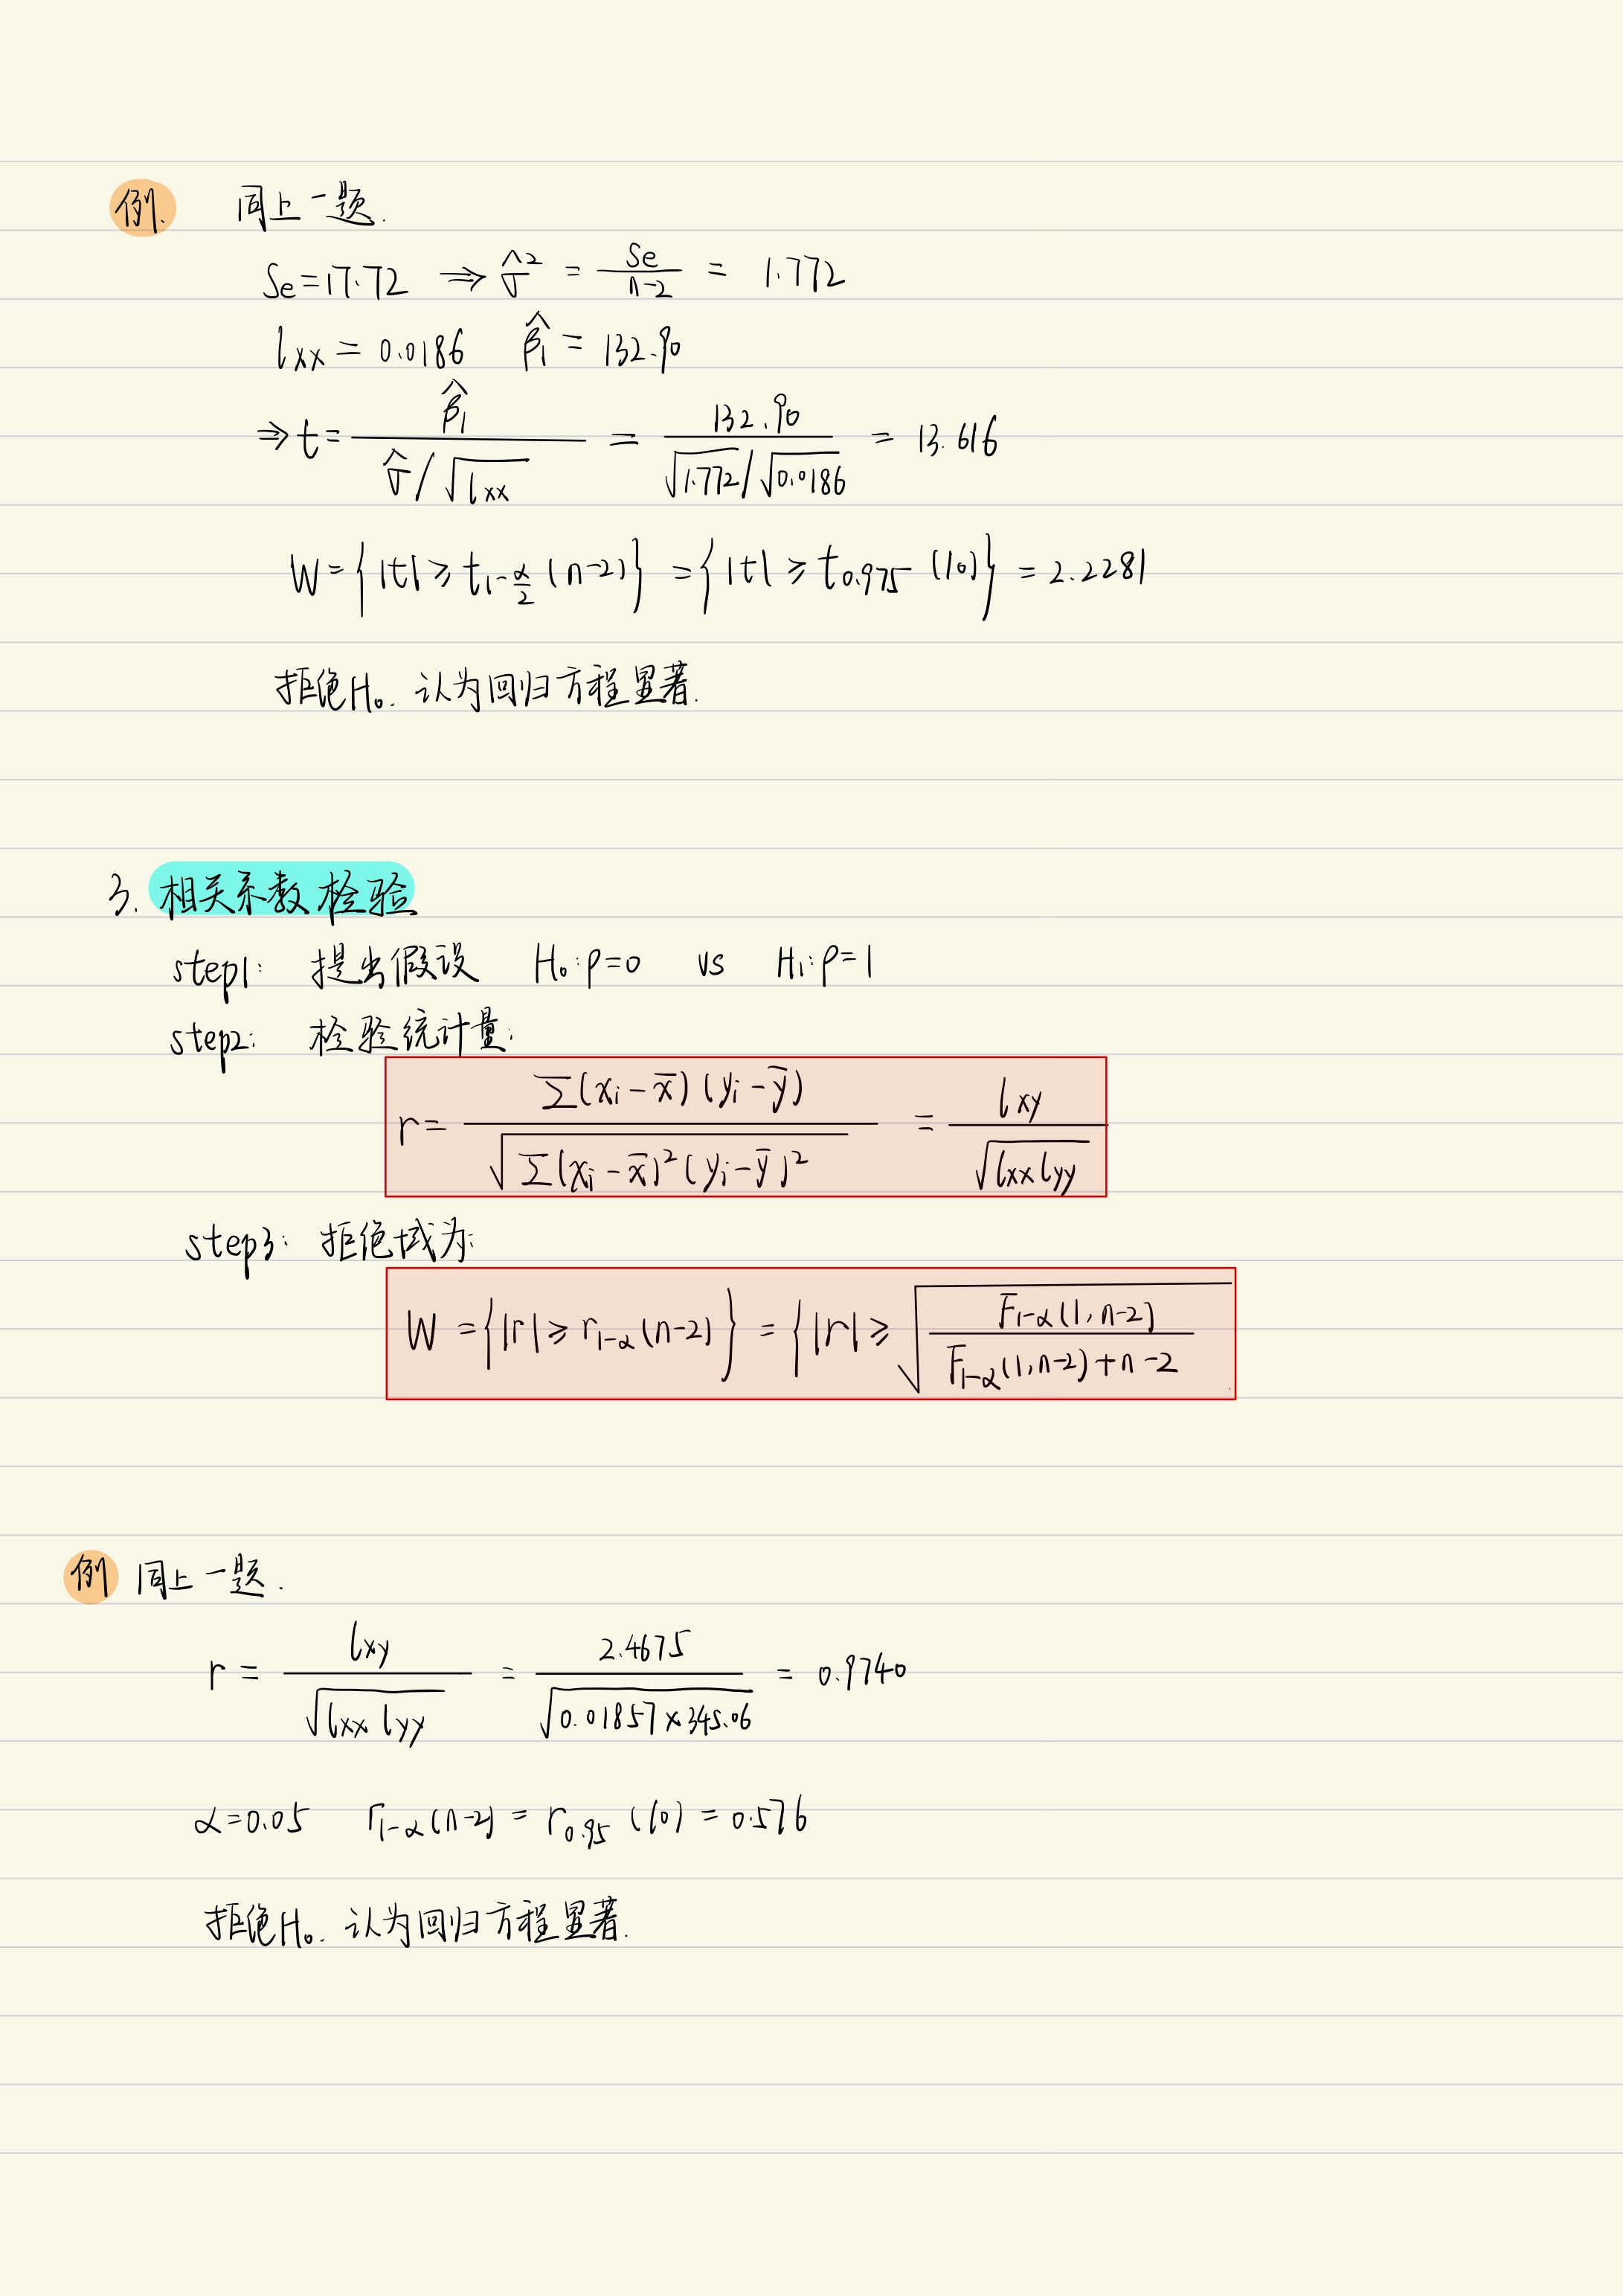 例. 同上一题.
Se=17.72 ⇒ σ̂² = Se/(n-2) = 1.772
lxx = 0.0186 β̂₁ = 132.90
⇒ t = β̂₁/(σ̂/√lxx) = 132.90/(√1.772/√0.0186) = 13.616
W={|t|≥t_{1-α/2}(n-2)} ={|t|≥t_{0.975}(10)} = 2.2281
拒绝H₀. 认为回归方程显著.
3. 相关系数检验
step1: 提出假设 H₀:ρ=0 vs H₁:ρ=1
step2: 检验统计量:
r= ∑(xᵢ-x̄)(yᵢ-ȳ)/√(∑(xᵢ-x̄)²(yᵢ-ȳ)²) = lxy/√(lxx lyy)
step3: 拒绝域为:
W ={|r|≥r_{1-α}(n-2)} = {|r|≥√(F_{1-α}(1,n-2)/(F_{1-α}(1,n-2)+n-2))
例 同上一题.
r = lxy/√(lxx lyy) = 2.4675/√(0.01857×345.06) = 0.9740
α=0.05 r_{1-α}(n-2) = r_{0.95}(10) = 0.576
拒绝H₀. 认为回归方程显著.